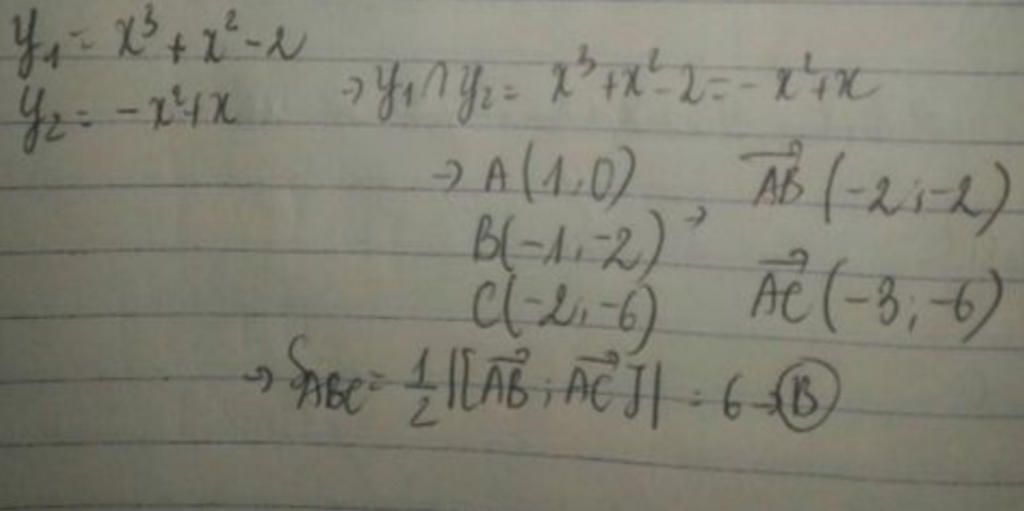 y₁ = x³ + x² - 2
y₂ = -x² + x → y₁ ∩ y₂ = x³ + x² - 2 = -x² + x
→ A(1,0) \overrightarrow{AB}(-2;-2)
B(-1,-2) →
C(-2,-6) \overrightarrow{AC}(-3;-6)
→ S_{ABC} = \frac{1}{2}|[\overrightarrow{AB};\overrightarrow{AC}]| = 6 → Ⓑ